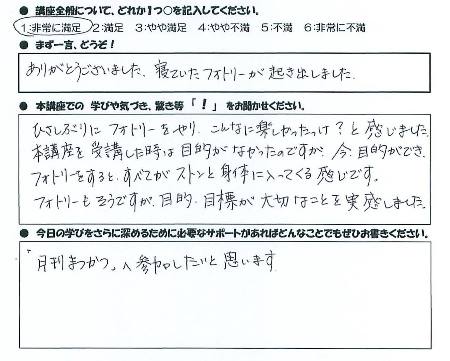 ● 講座全般について、どれか1つ○を記入してください。
1:非常に満足 2:満足 3:やや満足 4:やや不満 5:不満 6:非常に不満
● まず一言、どうぞ！
ありがとうございました、寝ていたフォトリーが起き出しました。
● 本講座での 学びや気づき、驚き等「！」をお聞かせください。
ひさしぶりにフォトリーをやり、こんなに楽しかったっけ？と感じました。
本講座を受講した時は目的がなかったのですが、今、目的ができ、
フォトリーをすると、すべてがストンと身体に入ってくる感じです。
フォトリーもそうですが、目的、目標が大切なことを実感しました。
● 今日の学びをさらに深めるために必要なサポートがあればどんなことでもぜひお書きください。
「月刊まつかつ」へ参加したいと思います